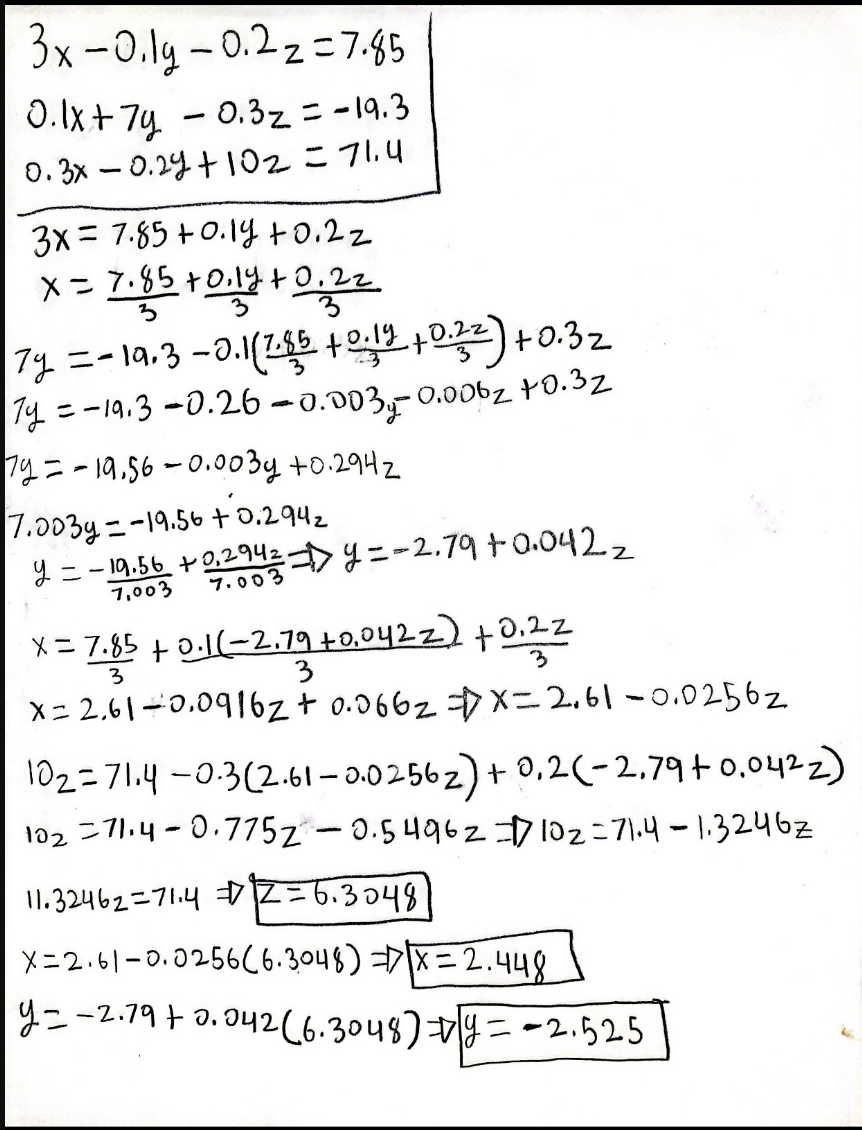 3x - 0.1y - 0.2z = 7.85
0.1x + 7y - 0.3z = -19.3
0.3x - 0.2y + 10z = 71.4
3x = 7.85 + 0.1y + 0.2z
x = 7.85/3 + 0.1y/3 + 0.2z/3
7y = -19.3 - 0.1(7.85/3 + 0.1y/3 + 0.2z/3) + 0.3z
7y = -19.3 - 0.26 - 0.003y - 0.006z + 0.3z
7y = -19.56 - 0.003y + 0.294z
7.003y = -19.56 + 0.294z
y = -19.56/7.003 + 0.294z/7.003 ⇒ y = -2.79 + 0.042z
x = 7.85/3 + 0.1(-2.79 + 0.042z)/3 + 0.2z/3
x = 2.61 - 0.0916z + 0.066z ⇒ x = 2.61 - 0.0256z
10z = 71.4 - 0.3(2.61 - 0.0256z) + 0.2(-2.79 + 0.042z)
10z = 71.4 - 0.775z - 0.5496z ⇒ 10z = 71.4 - 1.3246z
11.3246z = 71.4 ⇒ z = 6.3048
x = 2.61 - 0.0256(6.3048) ⇒ x = 2.448
y = -2.79 + 0.042(6.3048) ⇒ y = -2.525